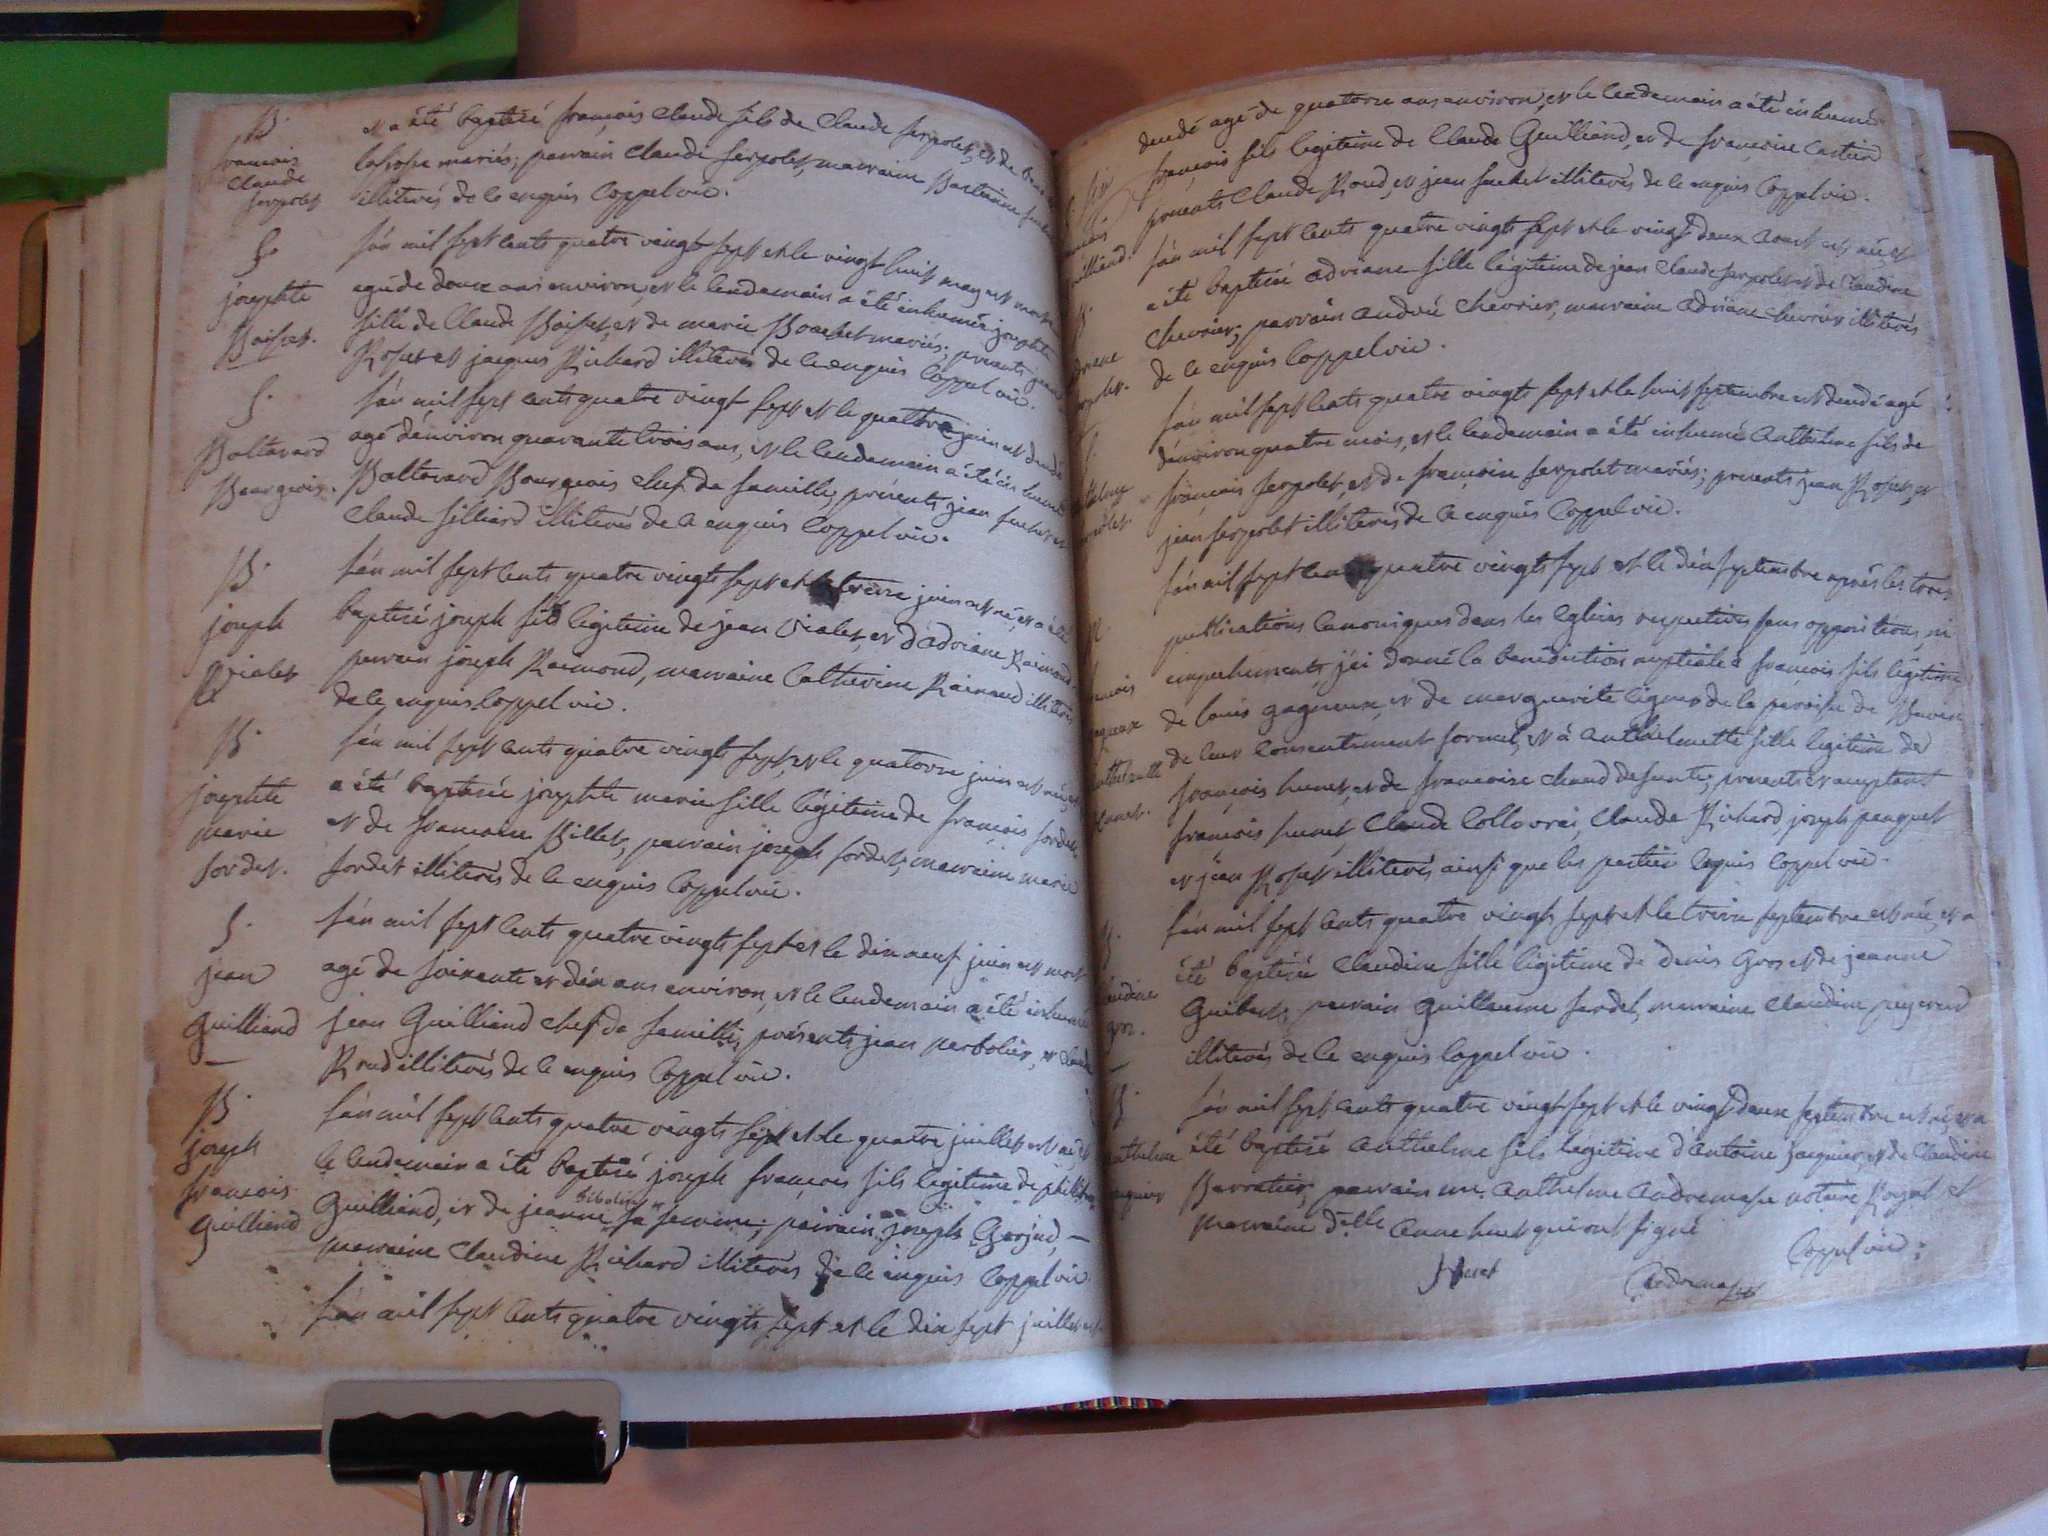 B.
francois
Claude
serpolet
et a été baptisé françois claude fils de Claude serpolet, et de
mariés; parrain claude serpolet, marraine
illiterés de ce enquis Coppel vic.
S.
josephte
Boisset.
l'an mil sept cents quatre vingt sept et le vingt huit may est morte
agée de douze ans environ, et le lendemain a été inhumée josephte
fille de Claude Boisset, et de marie Bouchet mariés; presents
Rosset et jacques Richard illiterés de ce enquis Coppel vic.
S.
Baltazard
Bourgeois.
l'an mil sept cents quatre vingt sept et le quattre juin est decedé
agé d'environ quarante trois ans, et le lendemain a été inhumé
Baltazard Bourgeois chef de famille, présents jean suchet et
Claude Silliard illiterés de ce enquis Coppel vic.
B.
joseph
Vialet
l'an mil sept cents quatre vingts sept et le treize juin est né, et a été
baptisé joseph fils légitime de jean Vialet, et d'adriane Raimond
parrain joseph Raimond, marraine Catherine Rainaud illiterés
de ce enquis Coppel vic.
B.
josephte
marie
sordet.
l'an mil sept cents quatre vingts sept, et le quatorze juin est née, et
a été baptisée josephte marie fille légitime de françois sordet
et de francoise Billet, parrain joseph sordet, marraine marie
sordet illiterés de ce enquis Coppel vic.
S.
jean
Guilliand
l'an mil sept cents quatre vingts sept et le dix neuf juin est mort
agé de soixante et dix ans environ, et le lendemain a été inhumé
jean Guilliand chef de famille, présents jean perbolier, et claude
Rond illiterés de ce enquis Coppel vic.
B.
joseph
francois
Guilliand
l'an mil sept cents quatre vingts sept et le quatre juillet est né, et
le lendemain a été baptisé joseph françois fils légitime de philibert
Guilliand, et de jeanne sa femme, parrain joseph
marraine Claudine Richard illiterés de ce enquis Coppel vic.
l'an mil sept cents quatre vingts sept et le dix sept juillet est
decedé agé de quatorze ans environ, et le lendemain a été inhumé
françois fils légitime de Claude Guilliand, et de françoise Cartier
presents Claude Rond, et jean suchet illiterés de ce enquis Coppel vic.
l'an mil sept cents quatre vingts sept et le vingt deux aoust est née et
a été baptisée adriane fille légitime de jean Claude serpolet et de Claudine
Chevrier, parrain andré Chevrier, marraine adriane chevrier illiterés
de ce enquis Coppel vic.
l'an mil sept cents quatre vingts sept et le huit septembre est decedé agé
d'environ quatre mois, et le lendemain a été inhumé Anthelme fils de
françois serpolet, et de françoise serpolet mariés; presents jean Rosset, et
jean serpolet illiterés de ce enquis Coppel vic.
l'an mil sept cents quatre vingts sept et le dix septembre après les trois
publications canoniques dans les Eglises respectives sans oppositions, ni
empechements, j'ai donné la bénédiction nuptiale à francois fils légitime
de louis gagneux, et de marguerite de la paroisse de
de leur consentement formel, et à Anthelmette fille légitime de
françois hunet, et de francoise chaud defunte; presents et acceptant
françois hunet, Claude Collovrai, Claude Richard, joseph peaguet
et jean Rosset illiterés ainsi que les parties enquis Coppel vic.
l'an mil sept cents quatre vingts sept et le treize septembre est née, et a
été baptisée Claudine fille légitime de denis Gros et de jeanne
Guibert, parrain Guillaume sordet, marraine Claudine
illiterés de ce enquis Coppel vic.
l'an mil sept cents quatre vingt sept et le vingt deux septembre est né et a
été baptisé Anthelme fils légitime d'antoine jacquier, et de Claudine
Barratier, parrain me. Anthelme Andremasse notaire Royal et
marraine dlle Anne huet qui ont signé
Coppel vic.
Huet
Andremasse